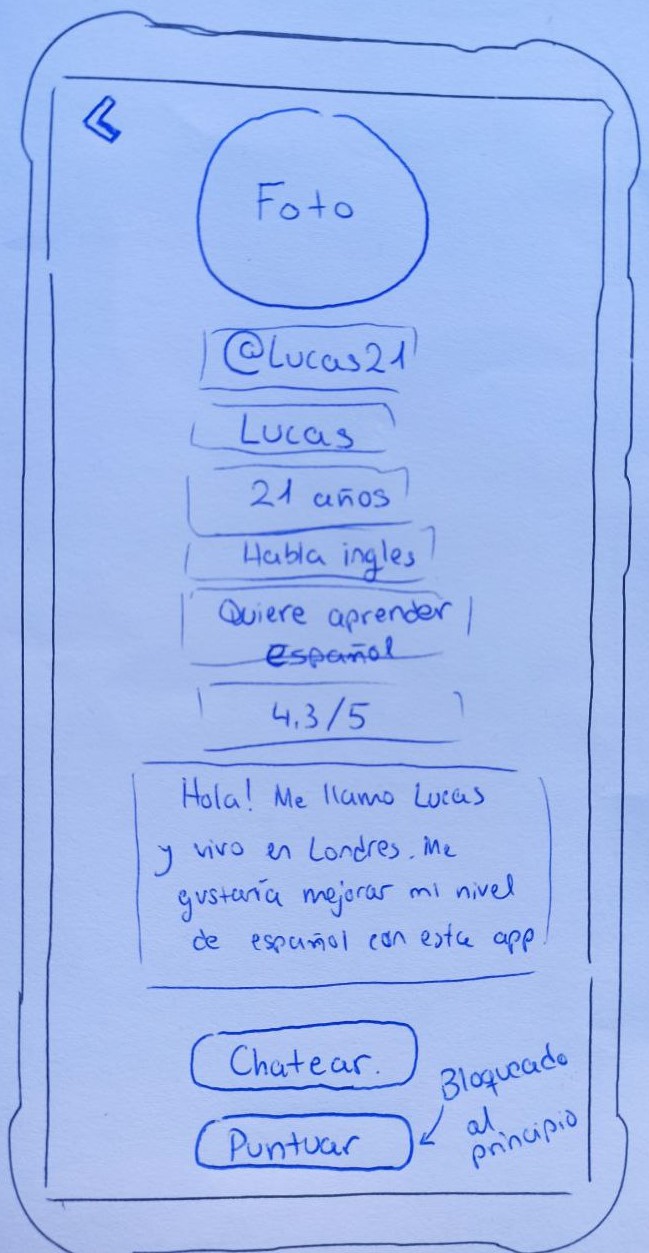 Foto
@Lucas21
Lucas
21 años
Habla ingles
Quiere aprender
español
4.3/5
Hola! Me llamo Lucas
y vivo en Londres. Me
gustaría mejorar mi nivel
de español con esta app.
Chatear.
Bloqueado
al
principio
Puntuar